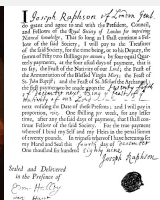 I Joseph Raphson of London Gent
do grant and agree to and with the President, Council,
and Fellows of the Royal Society of London for improving
Natural knowledge, That so long as I shall continue a Fel-
low of the said Society, I will pay to the Treasurer
of the said Society, for the time being, or to his Deputy, the
summ of fifty two shillings per annum, by four equal Quar-
terly payments, at the four usual days of payment, that is
to say, the Feast of the Nativity of our Lord, the Feast of
the Annunciation of the Blessed Virgin Mary, the Feast of
St. John Baptist, and the Feast of St. Michael the Archangel:
the first payment to be made upon the
next ensuing the Date of these Presents; and I will pay in
proportion, viz. One shilling per week, for any lesser
time, after any the said days of payment, that I shall con-
tinue Fellow of the said Society. For the true payment
whereof I bind my self and my Heirs in the penal summ
of twenty pounds. In witness whereof I have hereunto set
my Hand and Seal this day of
One thousand six hundred eighty nine
Joseph Raphson
Sealed and Delivered
in the Presence of
Hunt